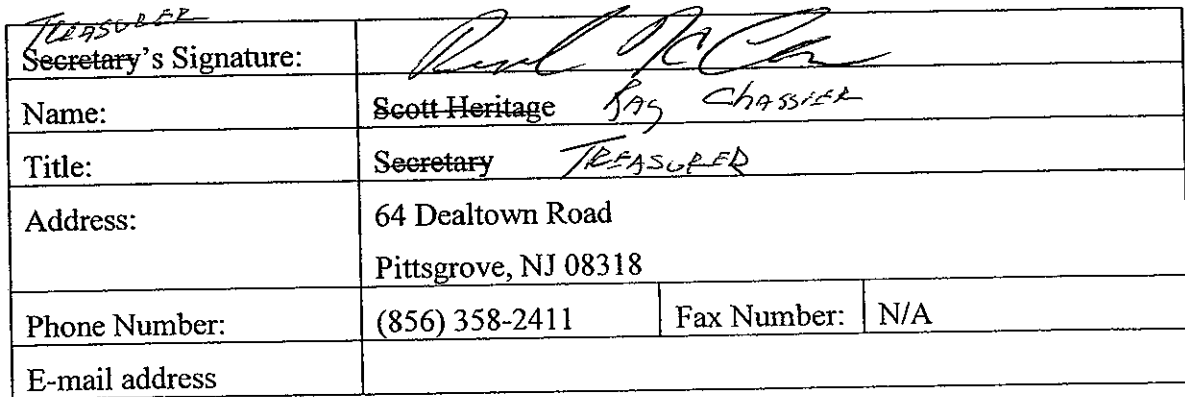 TREASURER
Secretary's Signature:
Name: Scott Heritage Ray Chassier
Title: Secretary TREASURER
Address: 64 Dealtown Road
Pittsgrove, NJ 08318
Phone Number: (856) 358-2411 Fax Number: N/A
E-mail address